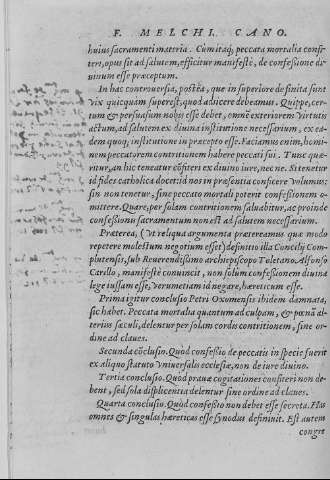 F. MELCHI. CANO.
huius sacramenti materia. Cùm itaq; peccata mortalia confi-
teri, opus sit ad salutem, efficitur manifestè, de confessione di-
uinum esse præceptum.
In hac controuersia, posteà, que in superiore definita sunt
vix quicquam superest, quod adicere debeamus. Quippe, cer-
tum & persuasum nobis esse debet, omnē exteriorem virtutis
actum, ad salutem ex diuina institutione necessarium, ex ea-
dem quoq; institutione in præcepto esse. Faciamus enim, homi-
nem peccatorem contritionem habere peccati sui. Tunc quæ-
ritur, an hic teneatur cōfiteri ex diuino iure, nec ne. Si tenetur
id fides catholica docet: id nos in præsentia conficere volumus:
sin non tenetur, sine peccato mortali potent confessionem o-
mittere. Quare, per solam contritionem saluabitur, ac proinde
confessionis sacramentum non est ad salutem necessarium.
Præterea, (vt reliqua argumenta prætereamus quæ modo
repetere molestum negotium esset) definitio illa Concilij Com-
plutensis, sub Reuerendissimo archiepiscopo Toletano, Alfonso
Carillo, manifestè conuincit, non solùm confessionem diuina
lege iussam esse, verumetiam id negare, hæreticum esse.
Prima igitur conclusio Petri Oxomensis ibidem damnata,
sic habet. Peccata mortalia quantum ad culpam, & pœnā al-
terius sæculi, delentur per solam cordis contritionem, sine or-
dine ad claues.
Secunda cōclusio. Quòd confessio de peccatis in specie fuerit
ex aliquo statuto vniuersalis ecclesiæ, non de iure diuino.
Tertia conclusio. Quòd prauæ cogitationes confiteri non de-
bent, sed sola displicentia delentur sine ordine ad claues.
Quarta conclusio. Quòd confessio non debet esse secreta. Has
omnes & singulas hæreticas esse synodus definiuit. Est autem
congre